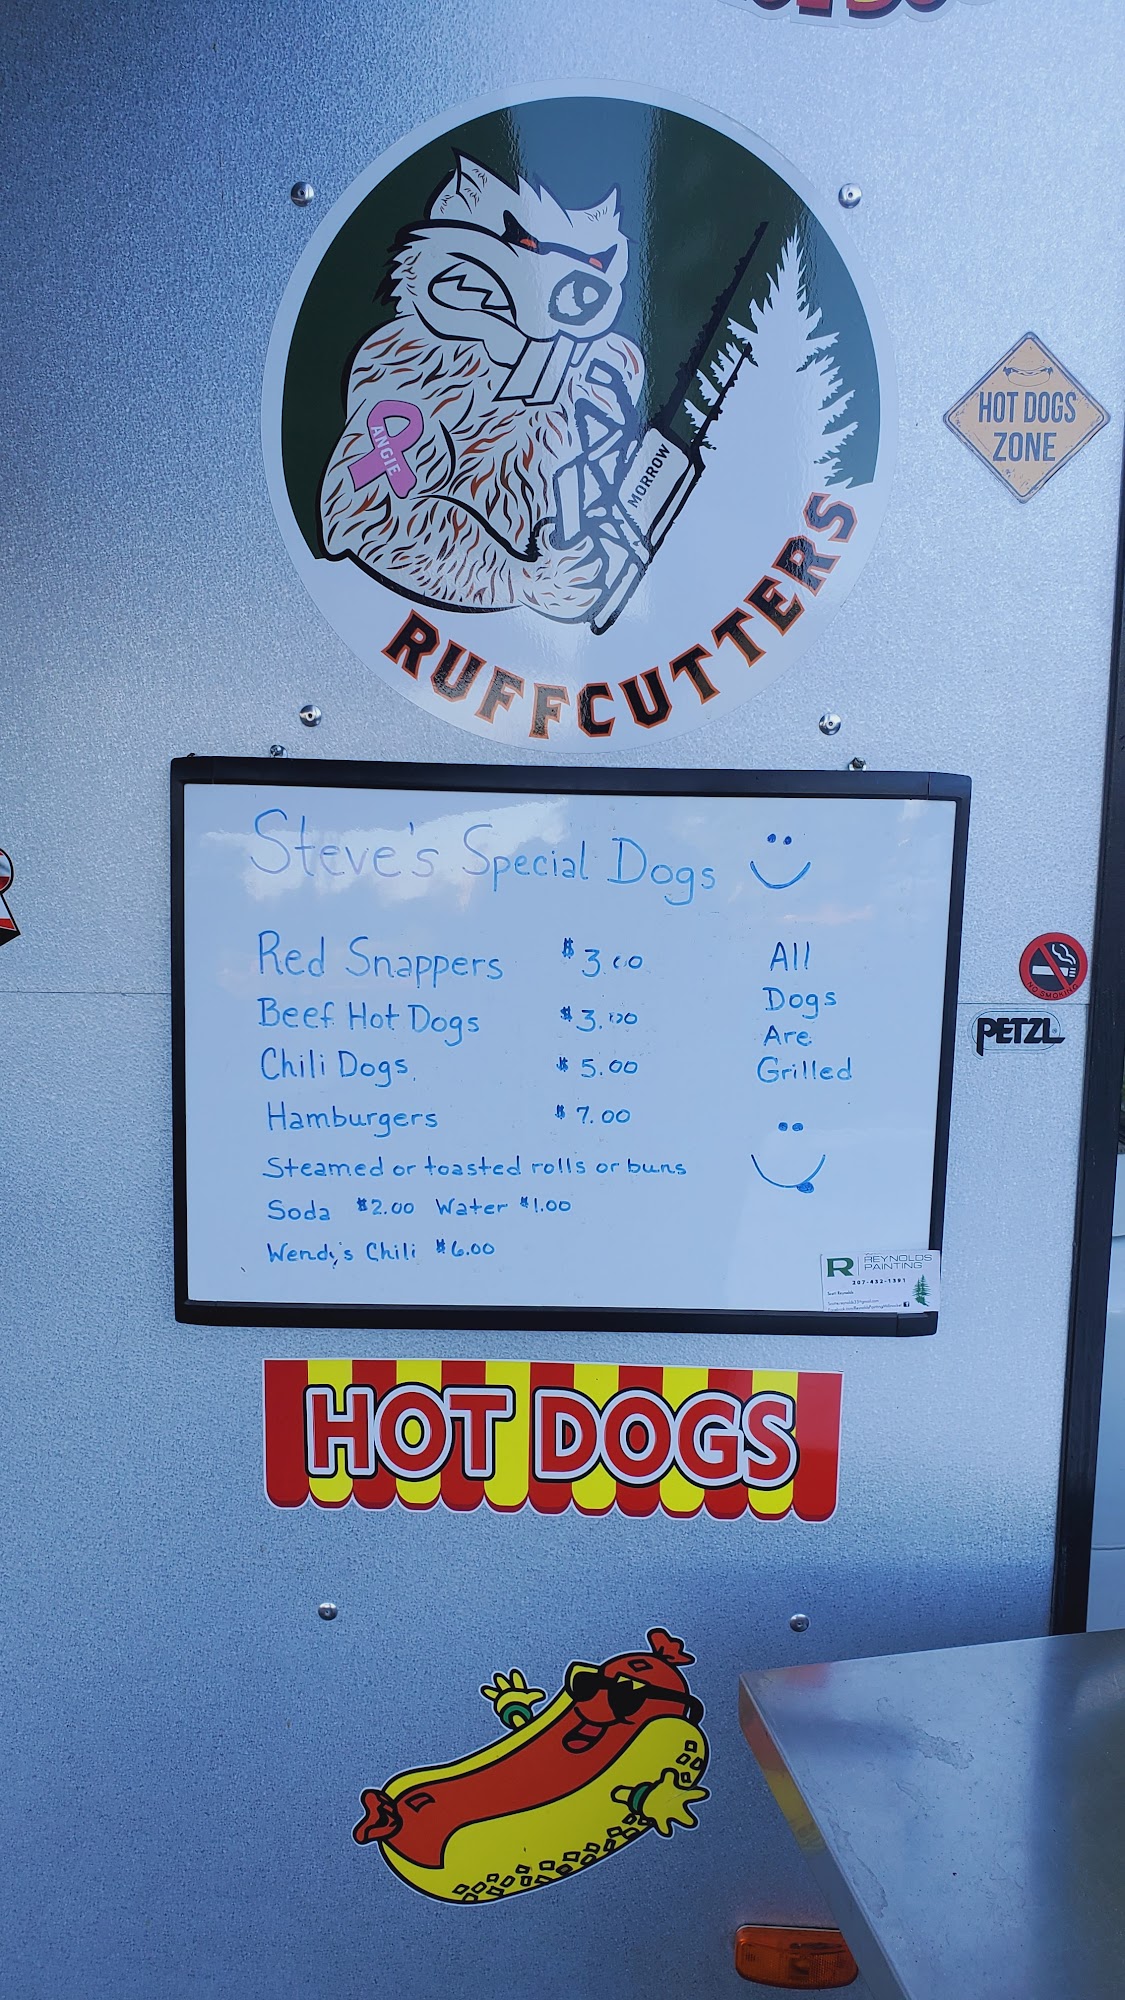 ANGIE
MORROW
RUFFCUTTERS
HOT DOGS
ZONE
Steve's Special Dogs
Red Snappers $3.00
Beef Hot Dogs $3.00
Chili Dogs $5.00
Hamburgers $7.00
Steamed or toasted rolls or buns
Soda $2.00 Water $1.00
Wendy's Chili $6.00
All
Dogs
Are
Grilled
NO SMOKING
PETZL
R REYNOLDS
PAINTING
207-432-1391
Scott Reynolds
HOT DOGS